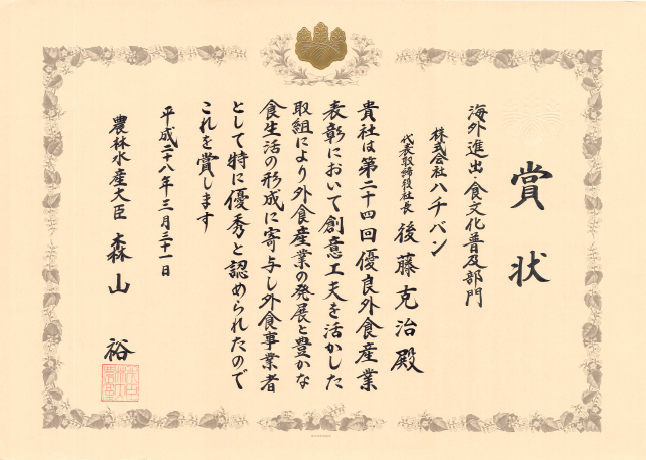 賞状
海外進出・食文化普及部門
株式会社ハチバン
代表取締役社長 後藤克治殿
貴社は第二十四回優良外食産業
表彰において創意工夫を活かした
取組により外食産業の発展と豊かな
食生活の形成に寄与し外食事業者
として特に優秀と認められたので
これを賞します
平成二十八年三月三十一日
農林水産大臣 森山 裕